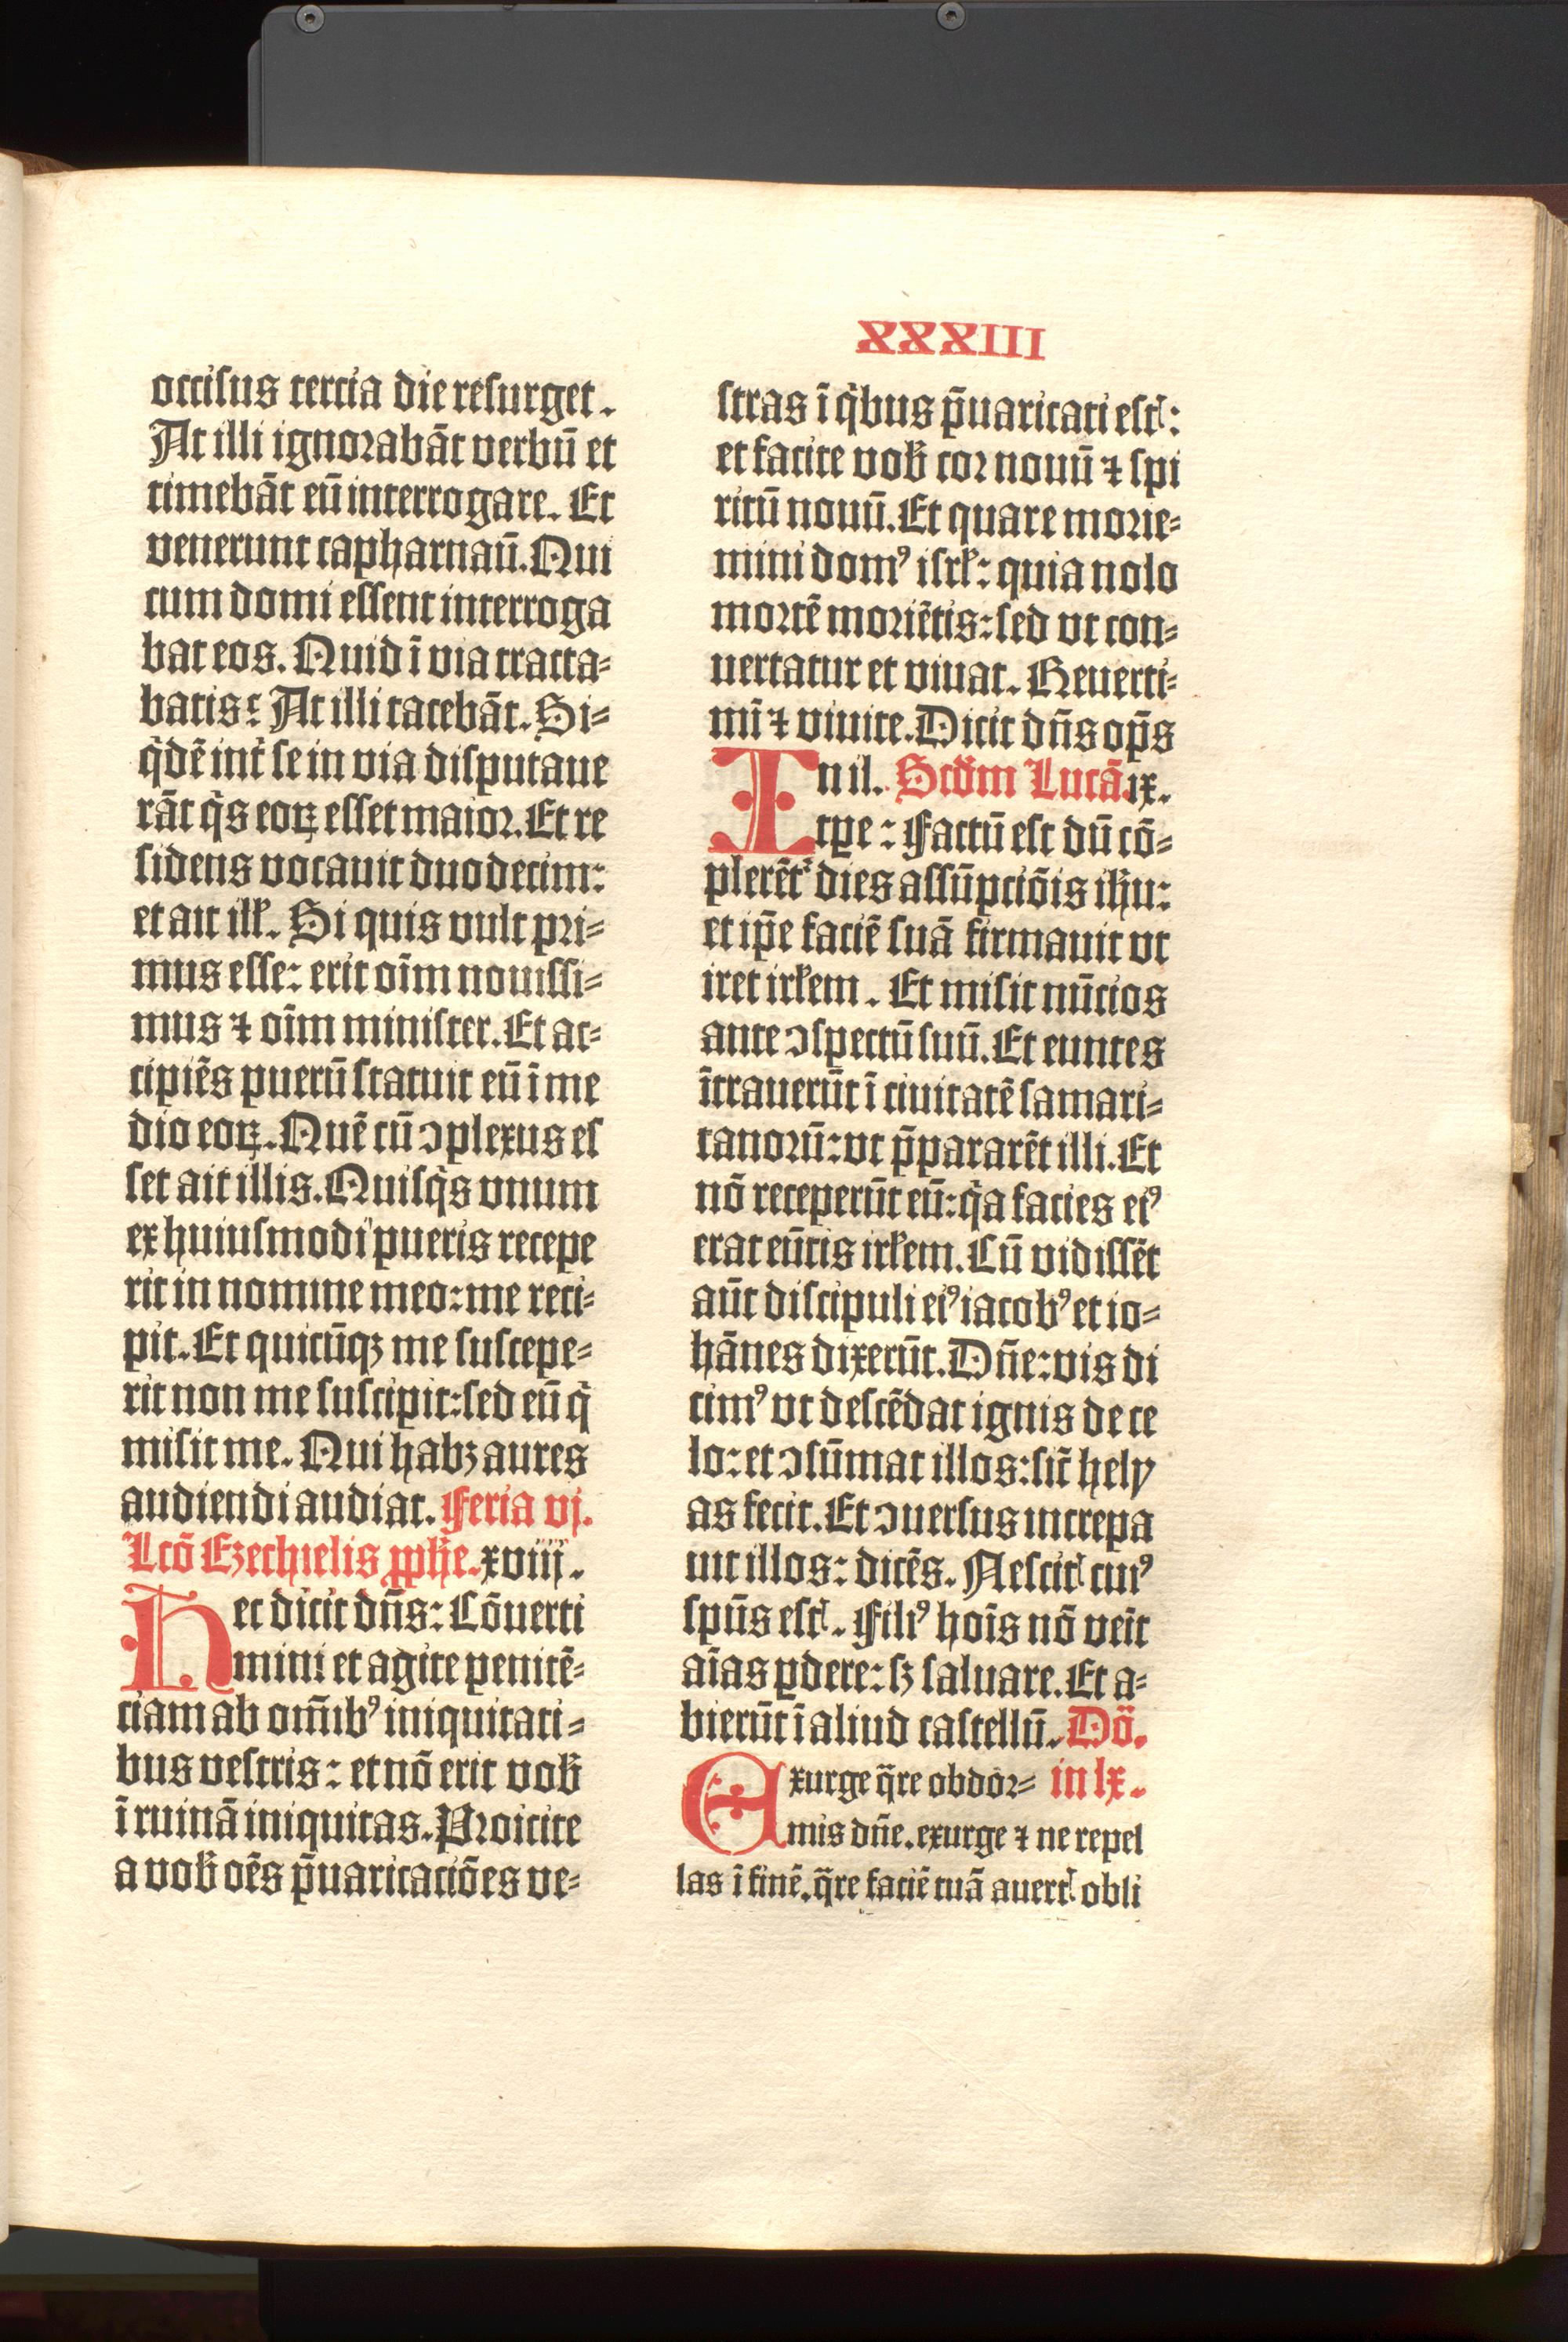 XXXIII
occisus tercia die resurget.
At illi ignorabāt verbū et
timebāt eū interrogare. Et
venerunt capharnaū. Qui
cum domi essent interroga
bat eos. Quid ī via tracta⸗
batis? At illi tacebāt. Si⸗
q̇dē int̄ se in via disputaue
rāt q̇s eoꝝ esset maior. Et re
sidens vocauit duodecim:
et ait ill̛. Si quis vult pri⸗
mus esse: erit oīm nouissi⸗
mus ⁊ oīm minister. Et ac⸗
cipiēs puerū statuit eū ī me
dio eoꝝ. Quē cū ↄplexus es
set ait illis. Quisq̇s vnum
ex huiusmodi pueris recepe
rit in nomine meo: me reci⸗
pit. Et quicūqꝫ me suscepe⸗
rit non me suscipit: sed eū q̇
misit me. Qui habꝫ aures
audiendi audiat. Feria vj.
Lcō Ezechielis ꝓph̄e. xviij.
Hec dicit dn̄s: Cōuerti
mini et agite penitē⸗
ciam ab om̄ibꝰ iniquitati⸗
bus vestris: et nō erit vob̛
ī ruinā iniquitas. Proicite
a vob̛ oēs p̄uaricaciōes ve⸗
stras ī q̇bus p̄uaricati estꝭ:
et facite vob̛ cor nouū ⁊ spi
ritū nouū. Et quare morie⸗
mini domꝰ isrl̛: quia nolo
mortē moriētis: sed vt con⸗
uertatur et viuat. Reuerti⸗
mī ⁊ viuite. Dicit dn̄s op̄s
In il. Scd̛m Lucā. ix.
tꝑe: Factū est dū cō⸗
plerēt᷑ dies assūpciōis ih̄u:
et ip̄e faciē suā firmauit vt
iret irl̛em. Et misit nūcios
ante ↄspectū suū. Et euntes
ītrauerūt ī ciuitatē samari⸗
tanorū: vt p̄pararēt illi. Et
nō receperūt eū: q̇a facies eiꝰ
erat eūtis irl̛em. Cū vidissēt
aūt discipuli eiꝰ iacobꝰ et io⸗
hānes dixerūt. Dn̄e: vis di
cimꝰ vt descēdat ignis de ce
lo: et ↄsūmat illos: sic̄ hely
as fecit. Et ↄuersus increpa
uit illos: dicēs. Nescitꝭ cuiꝰ
sp̄us estꝭ. Filiꝰ hoīs nō veīt
aīas ꝑdere: sꝫ saluare. Et a⸗
bierūt ī aliud castellū. Dō.
Exurge q̄re obdor⸗ in lx.
mis dn̄e. exurge ⁊ ne repel
las ī finē. q̄re faciē tuā auertꝭ obli